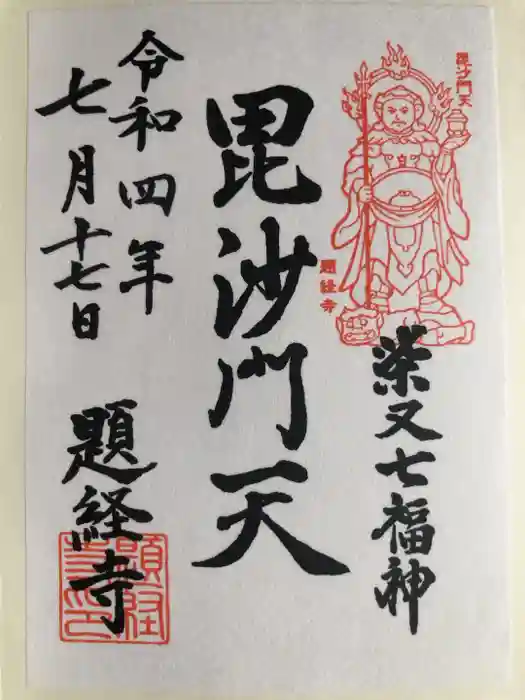 毘沙門天
題経寺
柴又七福神
毘沙門天
令和四年
七月十七日
題経寺
題経寺印